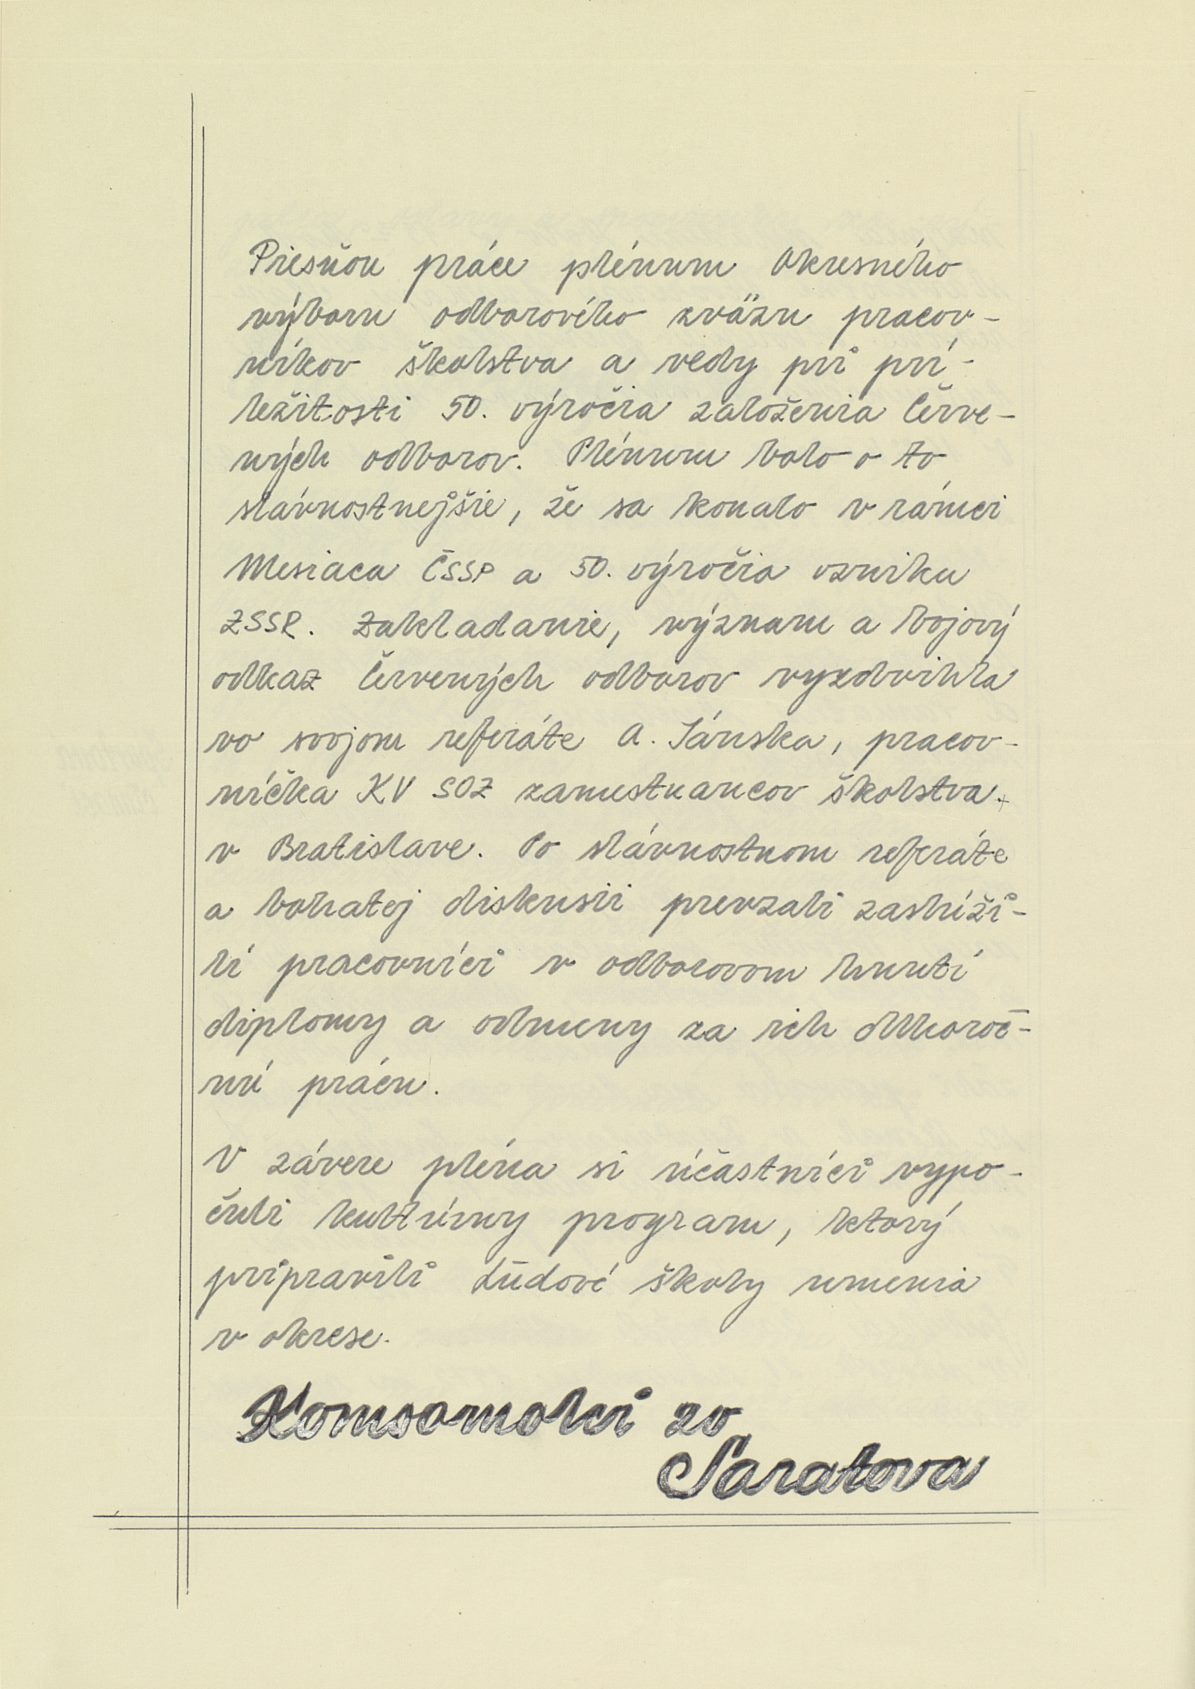 Piesňou práce plénum Okresného
výboru odborového zväzu pracov-
níkov školstva a vedy pri prí-
ležitosti 50. výročia založenia Červe-
ných odborov. Plénum bolo o to
slávnostnejšie, že sa konalo v rámci
Mesiaca ČSSP a 50. výročia vzniku
ZSSR. Zakladanie, význam a bojový
odkaz Červených odborov vyzdvihla
vo svojom referáte A. Jánska, pracov-
níčka KV SOZ zamestnancov školstva
v Bratislave. Po slávnostnom referáte
a bohatej diskusii prevzali zaslúži-
lí pracovníci v odborovom hnutí
diplomy a odmeny za ich dlhoroč-
nú prácu.
V závere pléna si účastníci vypo-
čuli kultúrny program, ktorý
pripravili Ľudové školy umenia
v okrese.
Komsomolci zo
Saratova